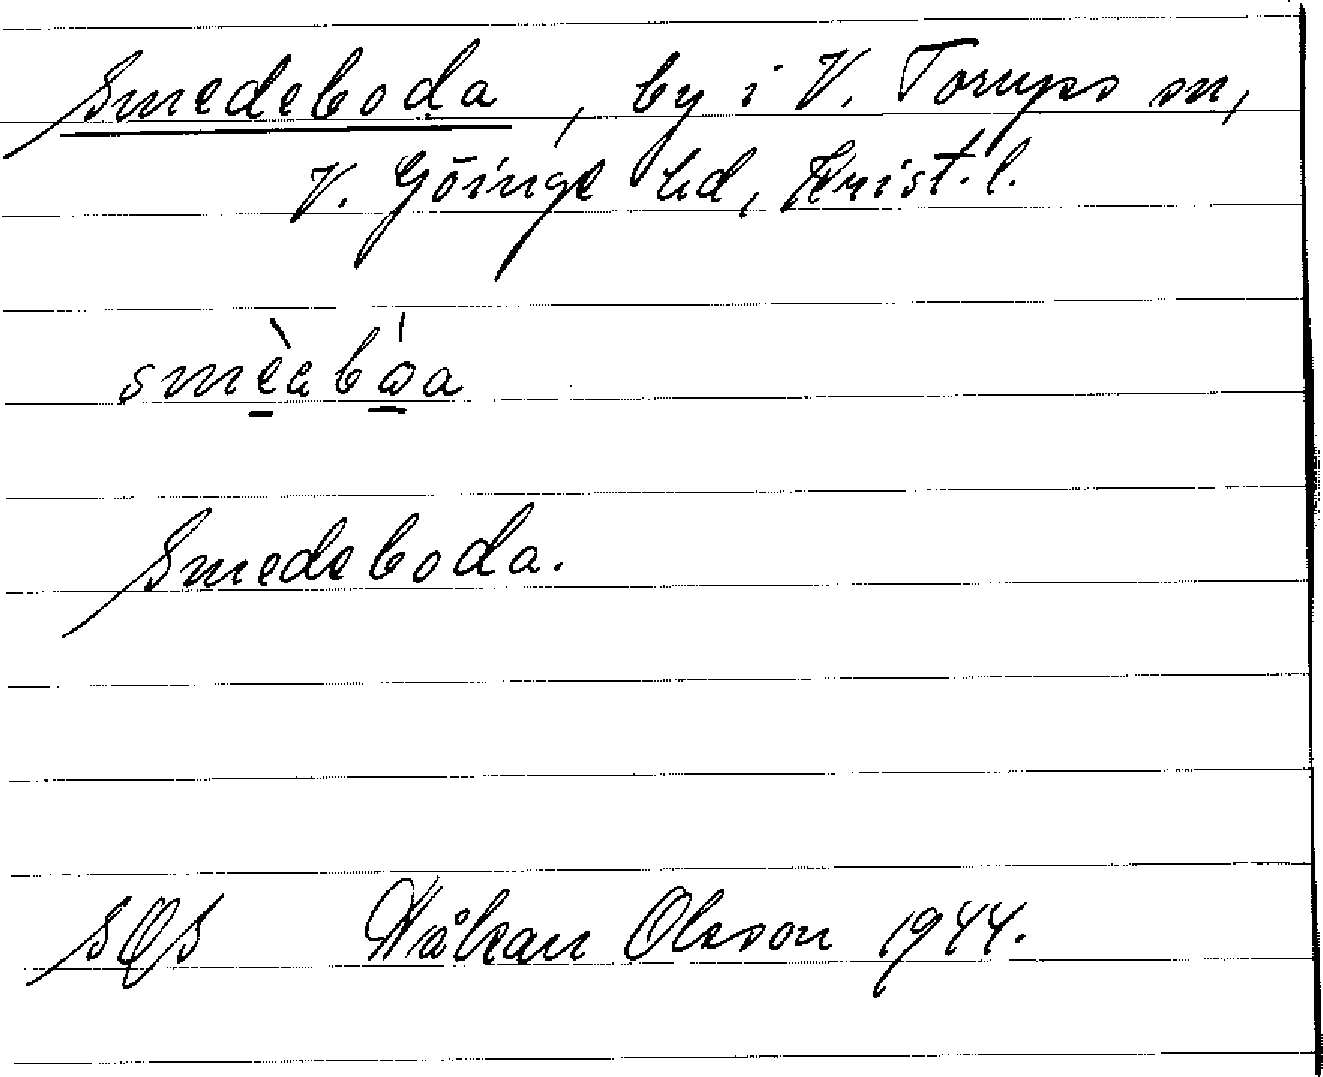 Smedeboda, by i V. Torups sn,
V. Göinge hd, Krist. l.
Smedeboda.
Håkan Olsson 1944.